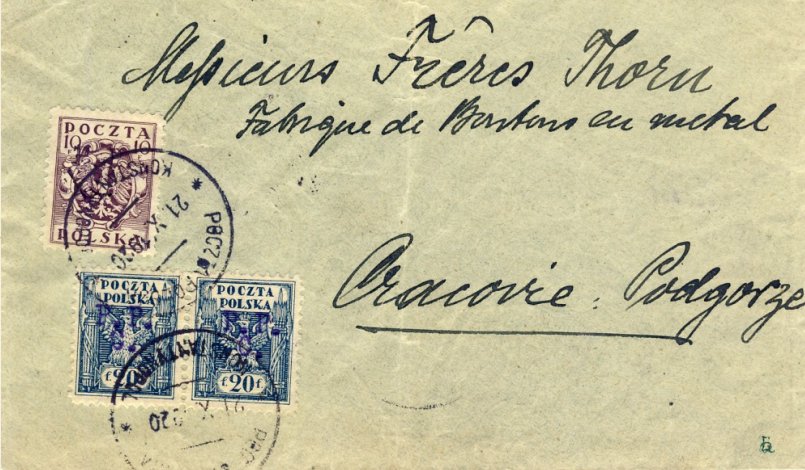 Messieurs Frères Thorn
Fabrique de Boutons en metal
Cracovie. Podgorze
POCZTA
10 10
POLSKA
21.X.1920
POCZTA
POCZTA
POLSKA
f 20 f
POCZTA
POLSKA
P.P.
f 20 f
21 X 1920